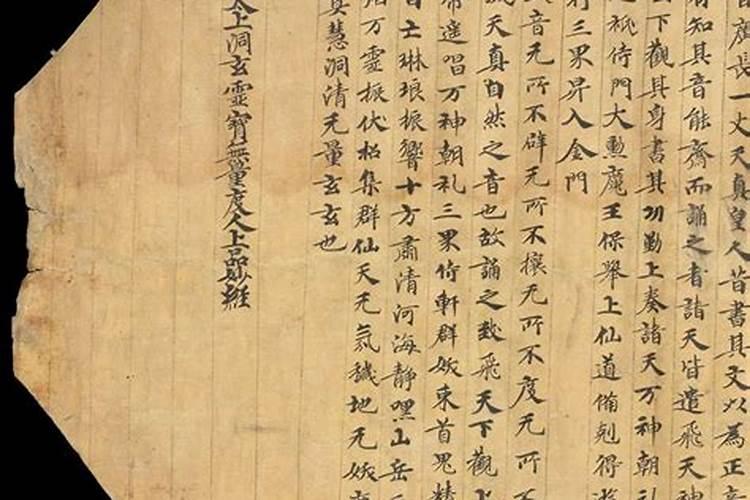 廣長一丈天真皇人昔書其文以為正音
有知其音能齋而誦之者諸天皆遣飛天神
下觀其身書其功勤上奏諸天万神朝礼
祇侍門大勳魔王保舉上仙道備剋得
行三界昇入金門
音无所不辟无所不禳无所不度无所不
成天真自然之音也故誦之致飛天下觀上
帝遥唱万神朝礼三界侍軒群妖束首鬼精
自亡琳琅振響十方肅清河海静嘿山岳
烟万靈振伏招集群仙天无氛穢地无妖
冥慧洞清无量玄玄也
太上洞玄靈寶無量度人上品妙經